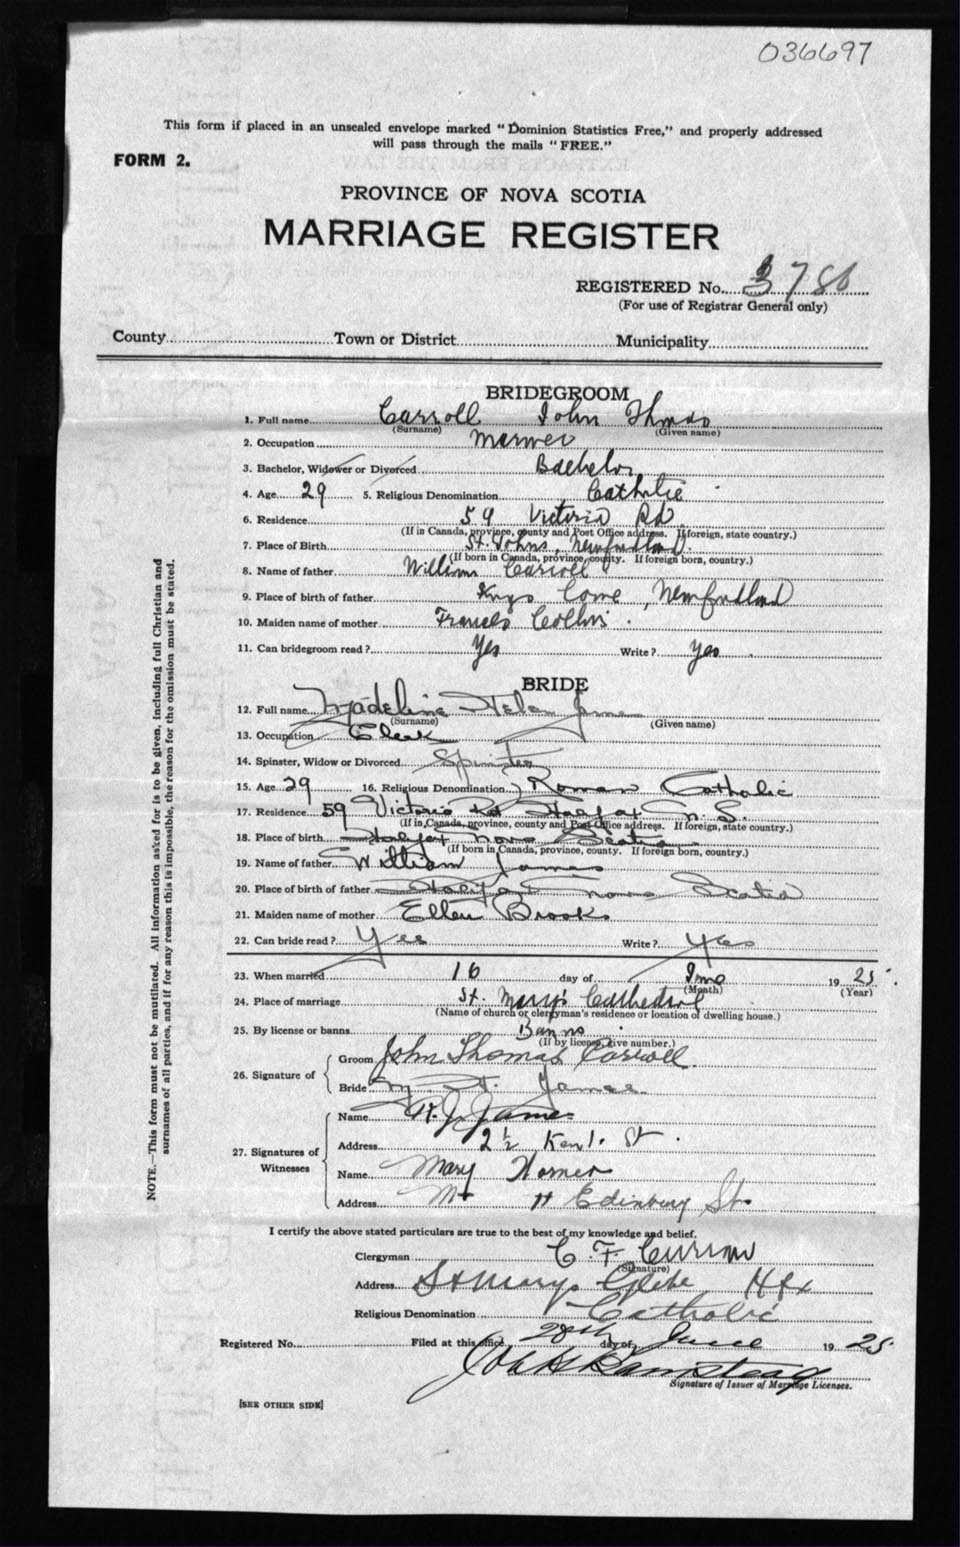 036697
This form if placed in an unsealed envelope marked "Dominion Statistics Free," and properly addressed
will pass through the mails "FREE."
FORM 2.
PROVINCE OF NOVA SCOTIA
MARRIAGE REGISTER
REGISTERED No. 3786
(For use of Registrar General only)
County Town or District Municipality
BRIDEGROOM
1. Full name Carroll John Thmas
(Surname) (Given name)
2. Occupation Mariner
3. Bachelor, Widower or Divorced Bachelor
4. Age 29 5. Religious Denomination Catholic
6. Residence 59 Victoria Rd
(If in Canada, province, county and Post Office address. If foreign, state country.)
7. Place of Birth St. Johns, Newfoundland.
(If born in Canada, province, county. If foreign born, country.)
8. Name of father William Carroll
9. Place of birth of father Kings Cove, Newfoundland
10. Maiden name of mother Frances Collins.
11. Can bridegroom read? Yes Write? Yes
BRIDE
12. Full name Madeline Helen James
(Surname) (Given name)
13. Occupation Clerk
14. Spinster, Widow or Divorced Spinster
15. Age 29 16. Religious Denomination Roman Catholic
17. Residence 59 Victoria Rd Halifax N.S.
(If in Canada, province, county and Post Office address. If foreign, state country.)
18. Place of birth Halifax Nova Scotia
(If born in Canada, province, county. If foreign born, country.)
19. Name of father William James
20. Place of birth of father Halifax Nova Scotia
21. Maiden name of mother Ellen Brooks
22. Can bride read? Yes Write? Yes
23. When married 16 day of June 1925
(Month) (Year)
24. Place of marriage St. Mary's Cathedral
(Name of church or clergyman's residence or location of dwelling house.)
25. By license or banns Banns
(If by license, give number.)
26. Signature of Groom John Thomas Carroll
Bride M. H. James
27. Signatures of Witnesses Name H. J. James
Address 2½ Kent. St.
Name Mary Horner
Address 11 Edinburg St.
I certify the above stated particulars are true to the best of my knowledge and belief.
Clergyman C. F. Curran
(Signature)
Address St Marys Glebe Hfx
Religious Denomination Catholic
Registered No. Filed at this office 28th day of June 1925
Signature of Issuer of Marriage Licenses.
[SEE OTHER SIDE]
NOTE.—This form must not be mutilated. All information asked for is to be given, including full Christian and
surnames of all parties, and if for any reason this is impossible, the reason for the omission must be stated.